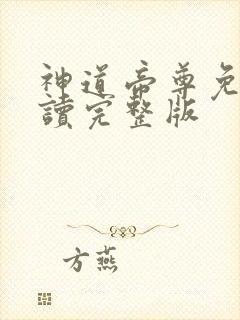 神道帝尊免
讀完整版
方燕